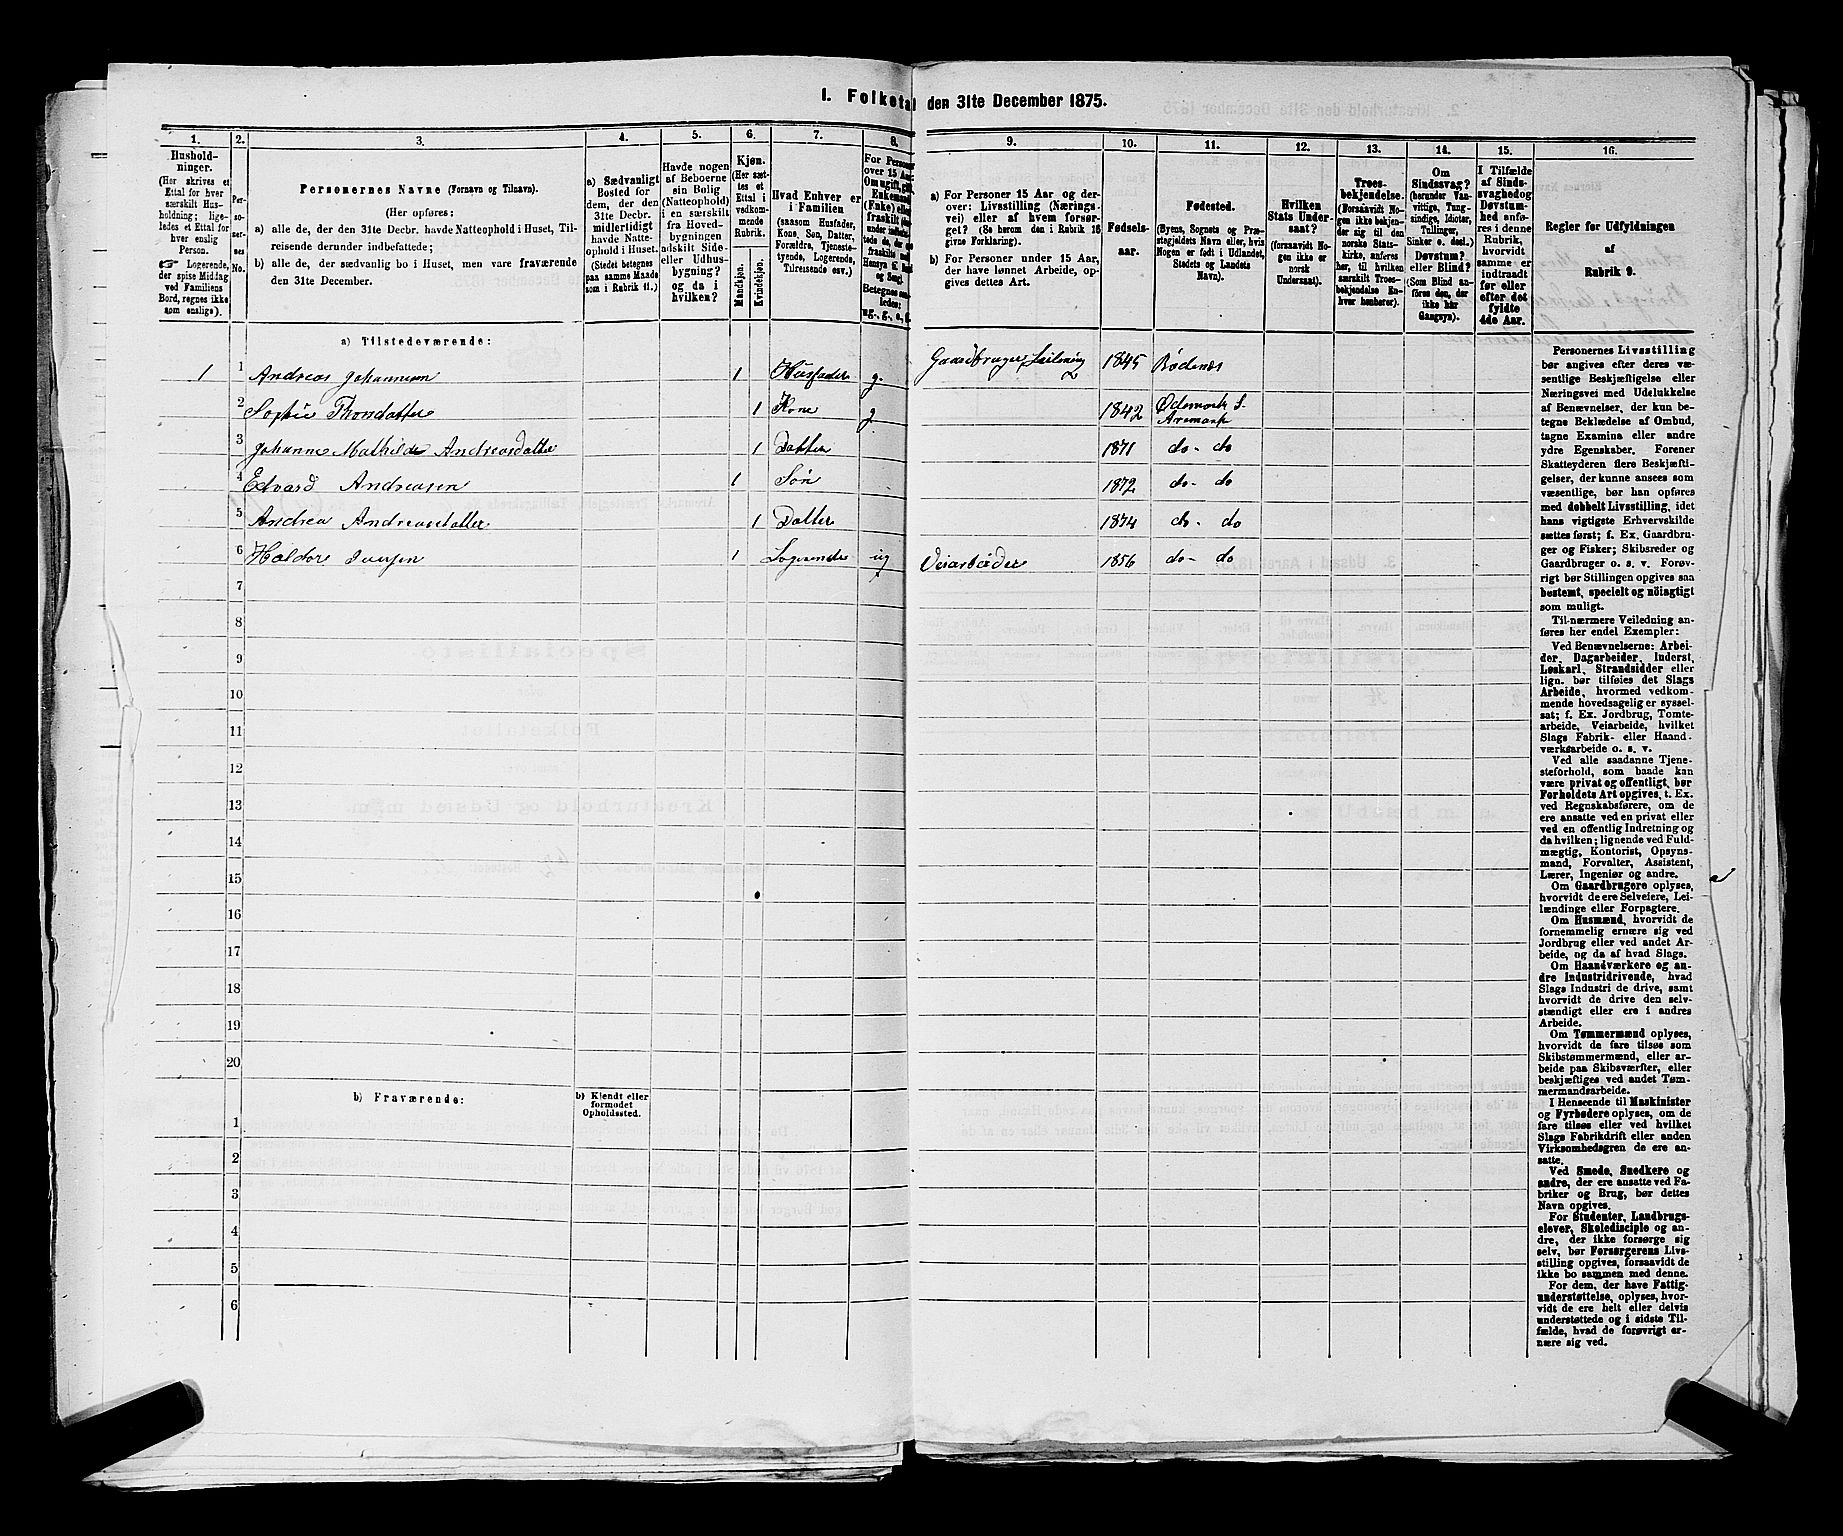 1. Folketal den 31te December 1875.
1.
Hushold-
ninger.
(Her skrives et
Ettal for hver
særskilt Hus-
holdning; lige-
ledes et Ettal for
hver enslig
Person.
Logerende,
der spise Middag
ved Familiens
Bord, regnes ikke
som enslige).
2.
Per-
so-
ner-
nes
No.
3.
Personernes Navne (Fornavn og Tilnavn).
(Her opføres:
a) alle de, der den 31te Decbr. havde Natteophold i Huset, Til-
reisende derunder indbefattede;
b) alle de, der sædvanlig bo i Huset, men vare fraværende
den 31te December.
4.
a) Sædvanligt
Bosted for
dem, der den
31te Decbr.
midlertidigt
havde Natte-
ophold i Huset.
(Stedet betegnes
paa samme Maade
som i Rubrik 11.)
5.
Havde nogen
af Beboerne
sin Bolig
(Natteophold)
i en særskilt
fra Hoved-
bygningen
adskilt Side-
eller Udhus-
bygning?
og da i
hvilken?
6.
Kjøn.
(Her sæt-
tes et
Ettal i
vedkom-
mende
Rubrik.
Mandkjøn.
Kvindekjøn.
7.
Hvad Enhver er
i Familien
(saasom Husfader,
Kone, Søn, Datter,
Forældre, Tjeneste-
tyende, Logerende,
Tilreisende osv.)
8.
For Personer
over 15 Aar:
9.
a) For Personer 15 Aar og der-
over: Livsstilling (Nærings-
vei) eller af hvem forsør-
get? (Se herom den i Rubrik 16
givne Forklaring).
b) For Personer under 15 Aar,
der have lønnet Arbeide, op-
gives dettes Art.
10.
Fødsels-
aar.
11.
Fødested.
(Byens, Sognets og Præ-
stegjeldets Navn eller, hvis
Nogen er født i Udlandet,
Stedets og Landets
Navn).
12.
Hvilken
Stats Under-
saat?
(forsaavidt No-
gen ikke er
norsk
Undersaat).
13.
Troes-
bekjendelse.
(Forsaavidt No-
gen ikke bekjen-
der sig til den
norske Stats-
kirke, anføres
her, til hvilken
særskilt Troes-
bekjendelse En-
hver henhører).
14.
Om
Sindssvag?
(herunder Van-
vittige, Tung-
sindige, Idioter,
Tullinger,
Sinker o. desl.)
Døvstum?
eller Blind?
(Som Blind an-
føres den, der
ikke har
Gangsyn).
15.
I Tilfælde
af Sinds-
svaghed og
Døvstum-
hed anfø-
res i denne
Rubrik,
hvorvidt
samme er
indtraadt
før eller
efter det
fyldte
4de Aar.
16.
Regler for Udfyldningen
af
Rubrik 9.
a) Tilstedeværende:
1 1 Andreas Johannesen 1 Husfader g. Gaardbruger, Leilending 1845 Rødenæs
2 Sophie Thorsdatter 1 Kone g. 1842 Ødemark S. Aremark
3 Johanne Mathilde Andreasdatter 1 Datter 1871 do - do
4 Edvard Andreasen 1 Søn 1872 do - do
5 Andrea Andreasdatter 1 Datter 1874 do - do
6 Haldor Iversen 1 Logerende ug Veiarbeider 1856 do - do
7
8
9
10
11
12
13
14
15
16
17
18
19
20
b) Fraværende:
b) Kjendt eller
formodet
Opholdssted.
1
2
3
4
5
6
Personernes Livsstilling
bør angives efter deres væ-
sentlige Beskjæftigelse eller
Næringsvei med Udelukkelse
af Benævnelser, der kun be-
tegne Beklædelse af Ombud,
tagne Examina eller andre
ydre Egenskaber. Forener
Skatteyderen flere Beskjæfti-
gelser, der kunne ansees som
væsentlige, bør han opføres
med dobbelt Livsstilling, idet
hans vigtigste Erhvervskilde
sættes først; f. Ex. Gaardbru-
ger og Fisker; Skibsreder og
Gaardbruger o. s. v. Forøv-
rigt bør Stillingen opgives saa
bestemt, specielt og nöiagtigt
som muligt.
Til nærmere Veiledning an-
føres her endel Exempler:
Ved Benævnelserne: Arbei-
der, Dagarbeider, Inderst,
Løskarl, Strandsidder eller
lign. bør tilføies det Slags
Arbeide, hvormed vedkom-
mende hovedsagelig er syssel-
sat; f. Ex. Jordbrug, Tomte-
arbeide, Veiarbeide, hvilket
Slags Fabrik- eller Haand-
værksarbeide o. s. v.
Ved alle saadanne Tjene-
steforhold, som baade kan
være privat og offentligt, bør
Forholdets Art opgives, f. Ex.
ved Regnskabsførere, om de
ere ansatte ved en privat eller
ved en offentlig Indretning og
da hvilken; lignende ved Fuld-
mægtig, Kontorist, Opsyns-
mand, Forvalter, Assistent,
Lærer, Ingeniør og andre.
Om Gaardbrugere oplyses,
hvorvidt de ere Selveiere, Lei-
lændinge eller Forpagtere.
Om Husmænd, hvorvidt de
fornemmelig ernære sig ved
Jordbrug eller ved andet Ar-
beide, og da af hvad Slags.
Om Haandværkere og an-
dre Industridrivende, hvad
Slags Industri de drive, samt
hvorvidt de drive den selv-
stændigt eller ere i andres
Arbeide.
Om Tømmermænd oplyses,
hvorvidt de fare tilsøs som
Skibstømmermænd, eller ar-
beide paa Skibsværfter, eller
beskjæftiges ved andet Tøm-
mermandsarbeide.
I Henseende til Maskinister
og Fyrbødere oplyses, om de
fare tilsøs eller ved hvilket
Slags Fabrikdrift eller anden
Virksomhedsgren de ere an-
satte.
Ved Smede, Snedkere og
andre, der ere ansatte ved Fa-
briker og Brug, bør dettes
Navn opgives.
For Studenter, Landbrugs-
elever, Skoledisciple og an-
dre, der ikke forsørge sig
selv, bør Forsørgerens Livs-
stilling opgives, forsaavidt de
ikke bo sammen med denne.
For dem, der have Fattig-
understøttelse, oplyses, hvor-
vidt de ere helt eller delvis
understøttede og i sidste Til-
fælde, hvad de forøvrigt er-
nære sig ved.